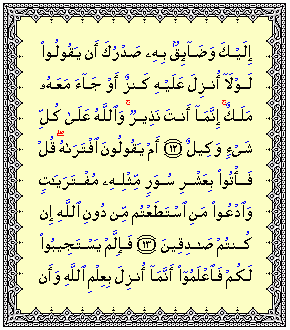 إِلَيْكَ وَضَآئِقٌۢ بِهِۦ صَدْرُكَ أَن يَقُولُوا۟
لَوْلَآ أُنزِلَ عَلَيْهِ كَنزٌ أَوْ جَآءَ مَعَهُۥ
مَلَكٌ ۚ إِنَّمَآ أَنتَ نَذِيرٌ ۚ وَٱللَّهُ عَلَىٰ كُلِّ
شَىْءٍ وَكِيلٌ ﴿١٢﴾ أَمْ يَقُولُونَ ٱفْتَرَىٰهُ ۖ قُلْ
فَأْتُوا۟ بِعَشْرِ سُوَرٍ مِّثْلِهِۦ مُفْتَرَيَـٰتٍ
وَٱدْعُوا۟ مَنِ ٱسْتَطَعْتُم مِّن دُونِ ٱللَّهِ إِن
كُنتُمْ صَـٰدِقِينَ ﴿١٣﴾ فَإِلَّمْ يَسْتَجِيبُوا۟
لَكُمْ فَٱعْلَمُوٓا۟ أَنَّمَآ أُنزِلَ بِعِلْمِ ٱللَّهِ وَأَن